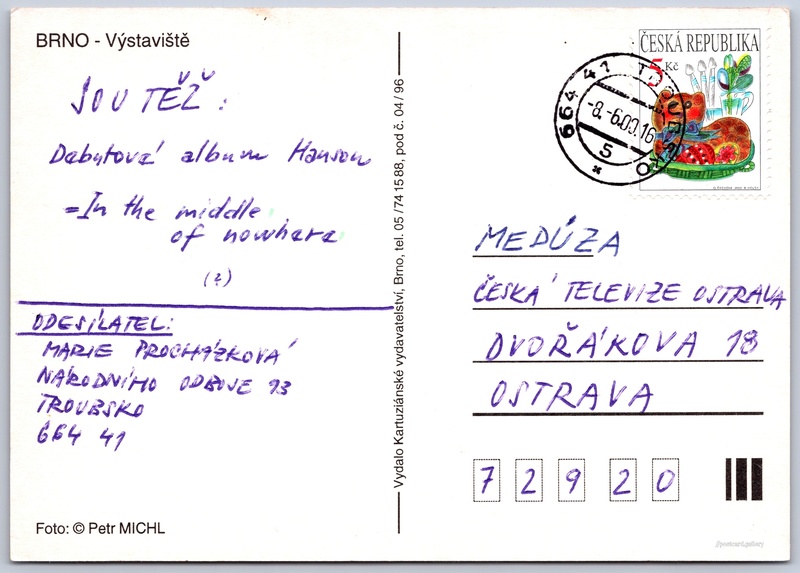 BRNO - Výstaviště
SOUTĚŽ:
Debutová album Hanson
=In the middle
of nowhere
(?)
ODESÍLATEL:
MARIE PROCHÁZKOVÁ
NÁRODNÍHO ODBOJE 93
TROUBSKO
664 41
Foto: © Petr MICHL
Vydalo Kartuziánské vydavatelství, Brno, tel. 05/74 15 88, pod č. 04/96
ČESKÁ REPUBLIKA
5 Kč
664 41 TROUBSKO
-8.-6.00.16
5
MEDÚZA
ČESKÁ TELEVIZE OSTRAVA
DVOŘÁKOVA 18
OSTRAVA
72920